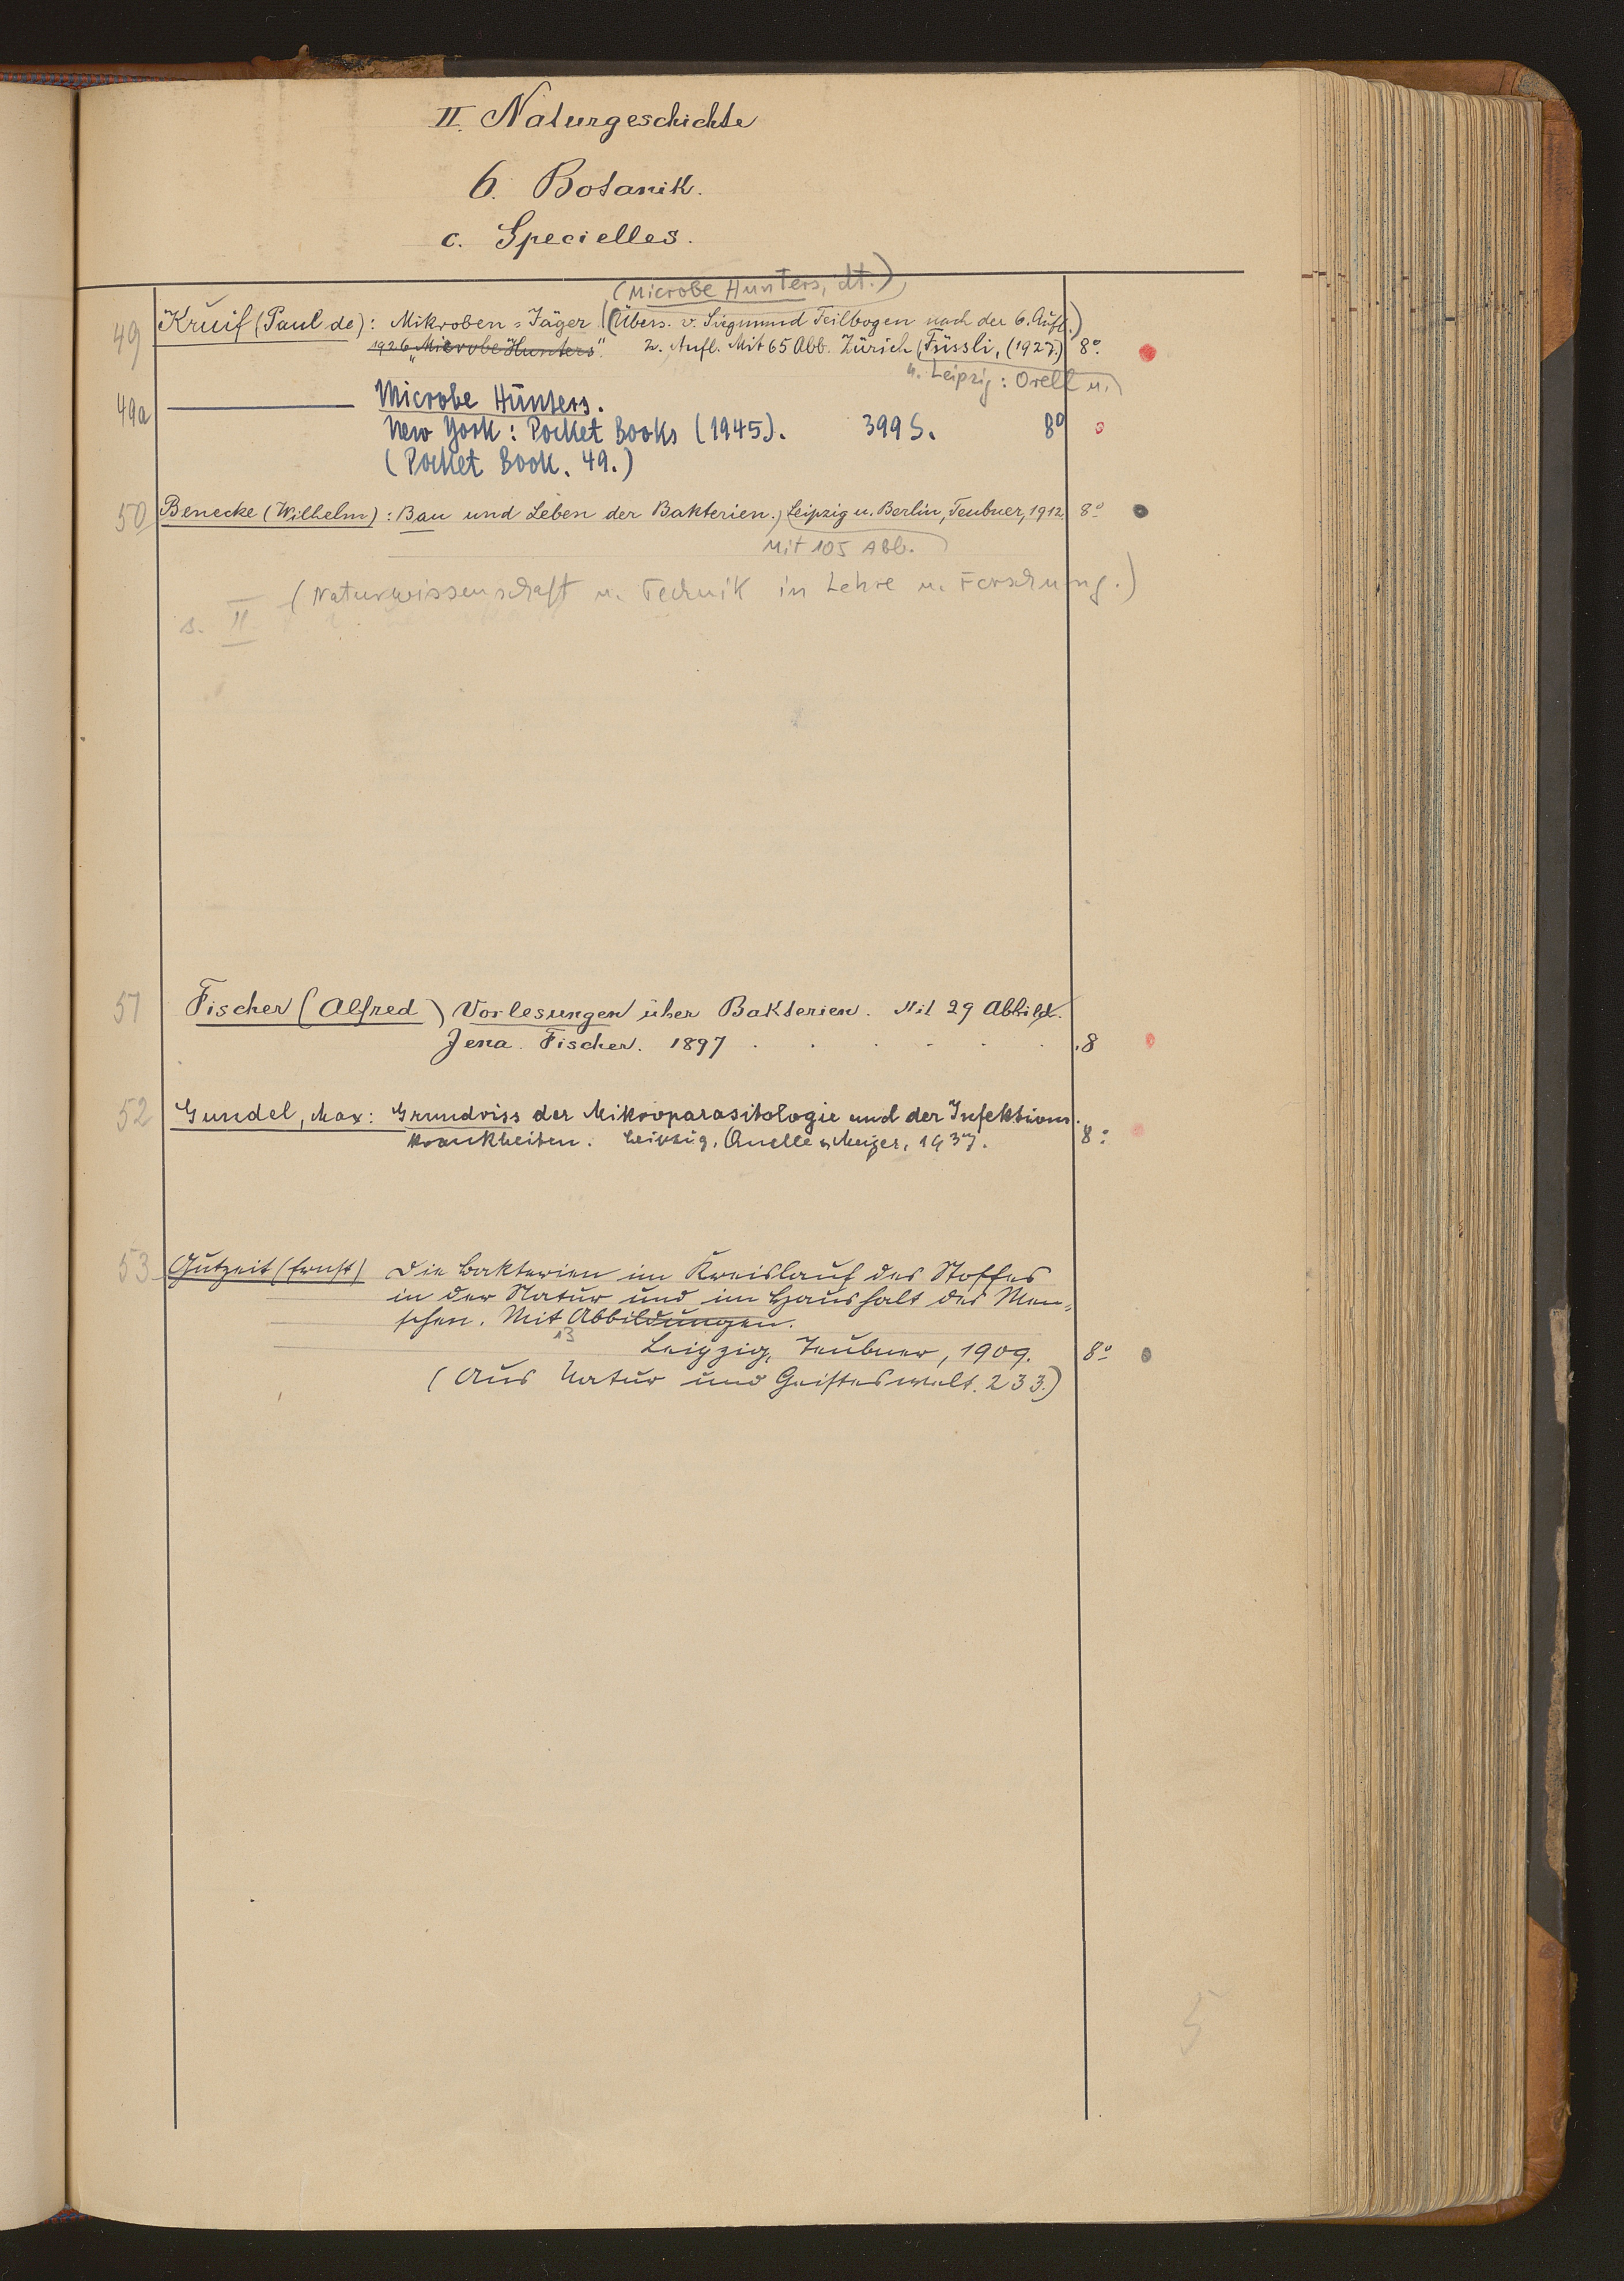 II. Naturgeschichte
6. Botanik.
c. Specielles.
(Microbe Hunters, dt.)
49 Kruif (Paul de): Mikroben-Jäger. (Übers. v. Siegmund Feilbogen nach der 6. Aufl.)
1926 „Microbe Hunters". 2. Aufl. Mit 65 Abb. Zürich, Füssli, (1927.) 8°.
u. Leipzig: Orell u.
49a Microbe Hunters.
New York: Pocket Books (1945). 399 S. 8°
(Pocket Book. 49.)
50 Benecke (Wilhelm): Bau und Leben der Bakterien. Leipzig u. Berlin, Teubner, 1912. 8°
Mit 105 Abb.
(Naturwissenschaft u. Technik in Lehre u. Forschung.)
s. II
51 Fischer (Alfred) Vorlesungen über Bakterien. Mit 29 Abbild.
Jena. Fischer. 1897 . . . . . . 8
52 Gundel, Max: Grundriss der Mikroparasitologie und der Infektions-
krankheiten. Leipzig, Quelle u. Meijer, 1937. 8°
53 Gutzeit (Ernst) Die Bakterien im Kreislauf des Stoffes
in der Natur und im Haushalt des Men-
schen. Mit Abbildungen.
13
Leipzig, Teubner, 1909. 8°
(Aus Natur und Geisteswelt. 233.)
5